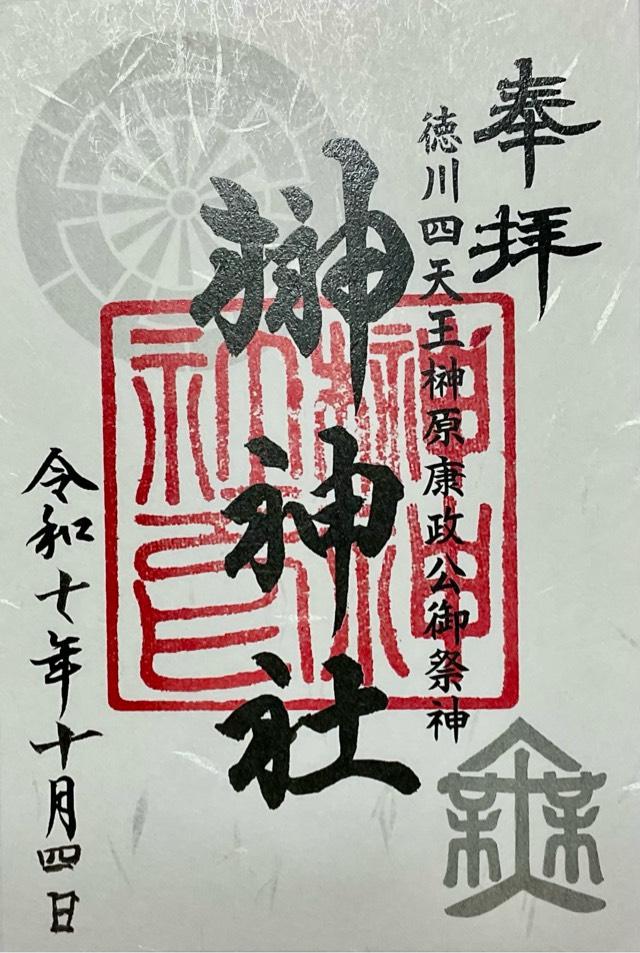 奉拝
徳川四天王榊原康政公御祭神
榊神社
令和七年十月四日